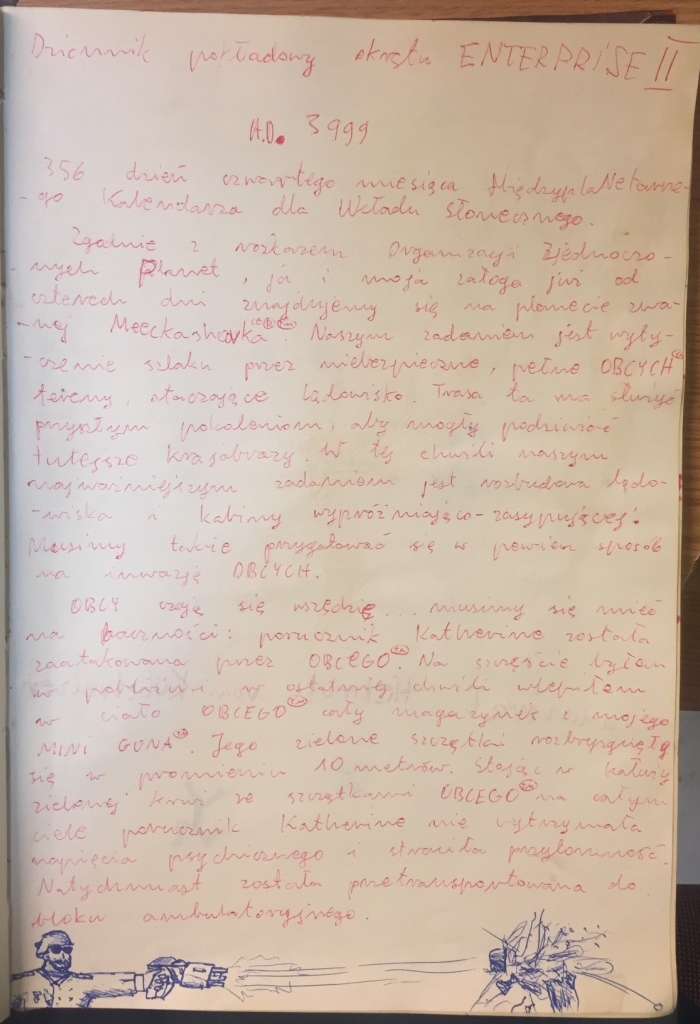 Dziennik pokładowy okrętu ENTERPRISE II
A.D. 3999
356 dzień czwartego miesiąca MiędzyplaNetarne-
-go Kalendarza dla Układu Słonecznego.
Zgodnie z rozkazem Organizacji Zjednoczo-
-nych Planet, ja i moja załoga już od
czterech dni znajdujemy się na planecie zwa-
-nej Meeckashovka. Naszym zadaniem jest wyty-
-czenie szlaku przez niebezpieczne, pełne OBCYCH
tereny, otaczające lądowisko. Trasa ta ma służyć
przyszłym pokoleniom, aby mogły podziwiać
tutejsze krajobrazy. W tej chwili naszym
najważniejszym zadaniem jest rozbudowa lądo-
-wiska i kabiny wypróżniająco-zasypującej!
Musimy także przygotować się w pewien sposób
na inwazję OBCYCH.
OBCY czają się wszędzie... musimy się mieć
na baczności: porucznik Katherine została
zaatakowana przez OBCEGO. Na szczęście byłem
w pobliżu i w ostatniej chwili wlepiłem
w ciało OBCEGO cały magazynek z mojego
MINI GUNA. Jego zielone szczątki rozbryznęły
się w promieniu 10 metrów. Stojąc w kałuży
zielonej krwi ze szczątkami OBCEGO na całym
ciele porucznik Katherine nie wytrzymała
napięcia psychicznego i straciła przytomność.
Natychmiast została przetransportowana do
bloku ambulatoryjnego.